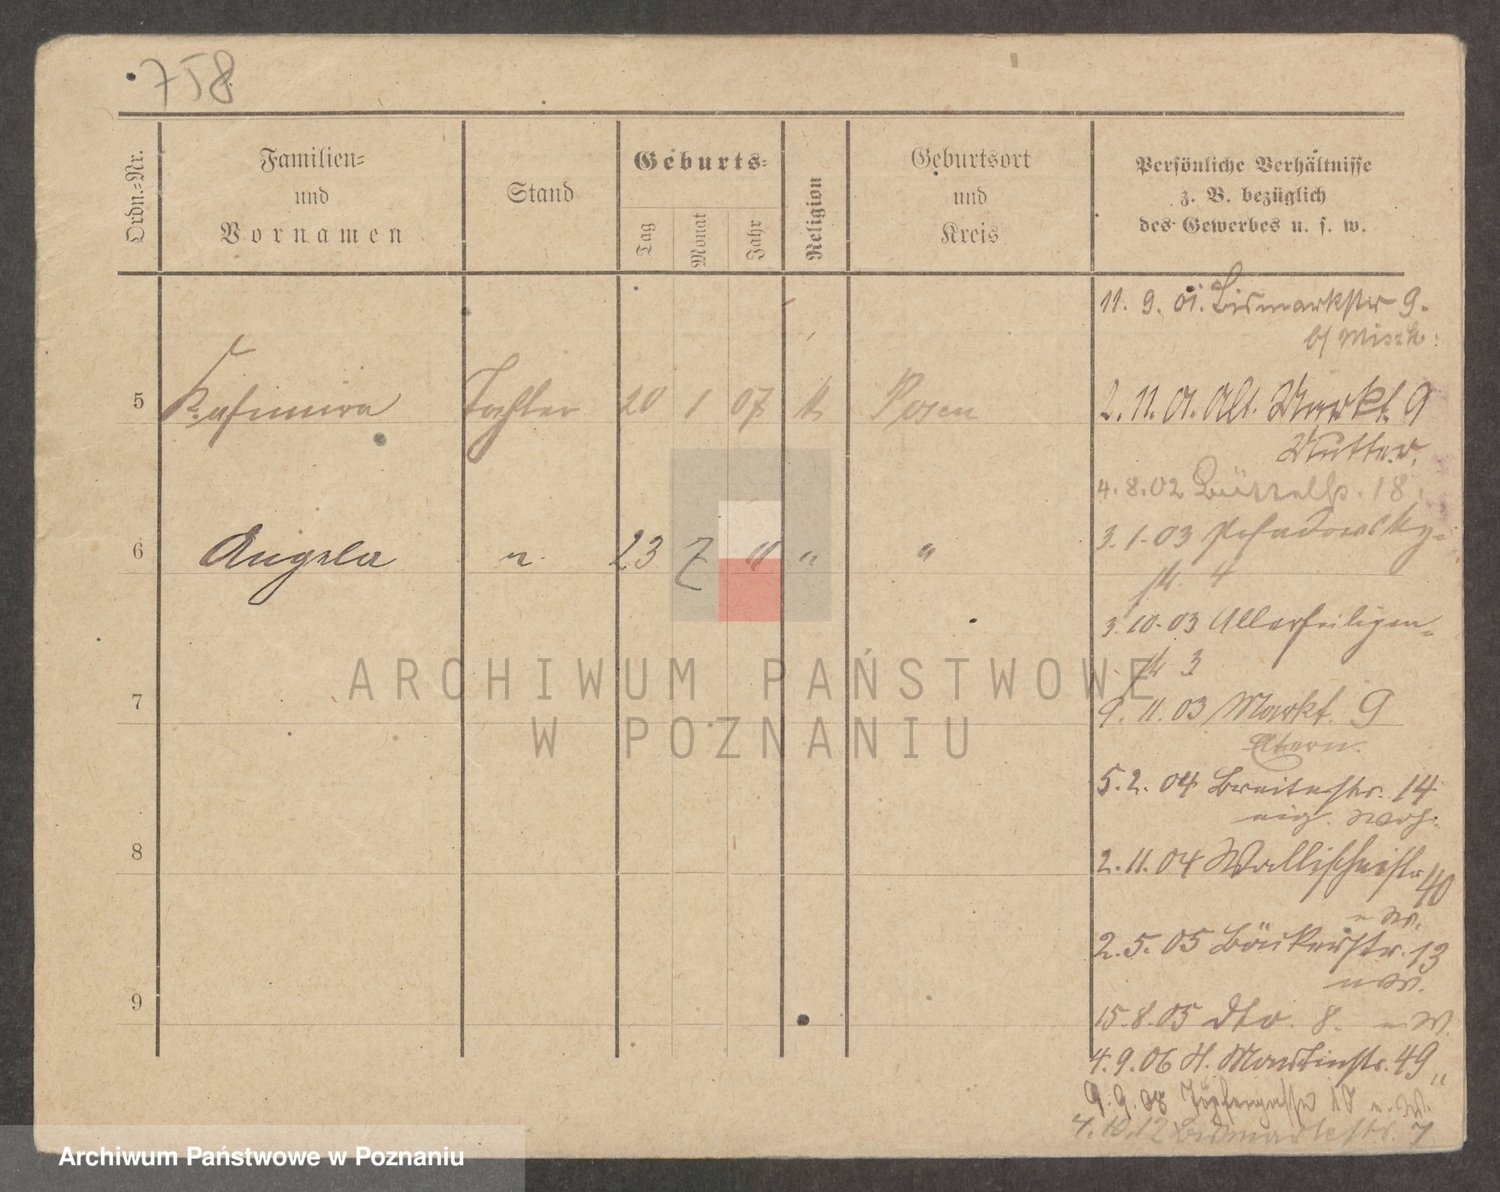 758
Ordn.-Nr.
Familien-
und
Vornamen
Stand
Geburts-
Tag
Monat
Jahr
Religion
Geburtsort
und
Kreis
Persönliche Verhältnisse
z. B. bezüglich
des Gewerbes u. s. w.
11. 9. 01. Bismarkstr 9.
b/ Misch.
5 Kasimira Tochter 20 1 07 Posen
2. 11. 01. Alt. Markt. 9
Mutter.
4. 8. 02 18.
6 Angela n. 23 7 " " "
3. 1. 03 Posadowsky-
str 4
3. 10. 03 Allerheiligen-
str 3
7
9. 11. 03 Markt. 9
Eltern.
5. 2. 04 Breitestr. 14
eig. Woh.
8
2. 11. 04 Wallischeistr 40
n W.
2. 5. 05 Bäckerstr. 13
n W.
9
15. 8. 05 dto. 8. n W.
4. 9. 06 St. Martinstr. 49 "
9. 9. 08 10 n. W.
4. 10. 12 Bismarckstr. 7
ARCHIWUM PAŃSTWOWE
W POZNANIU
Archiwum Państwowe w Poznaniu